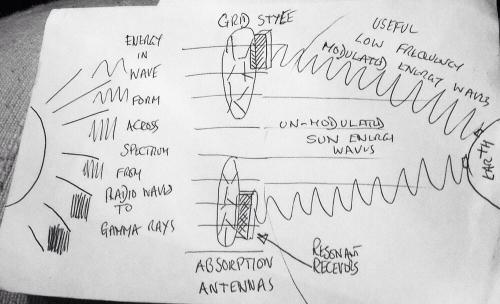 ENERGY
IN
WAVE
FORM
ACROSS
SPECTRUM
FROM
RADIO WAVES
TO
GAMMA RAYS
GRID STYLE
USEFUL
LOW FREQUENCY
MODULATED ENERGY WAVES
UN-MODULATED
SUN ENERGY
WAVES
EARTH
RESONANT
RECEVORS
ABSORPTION
ANTENNAS